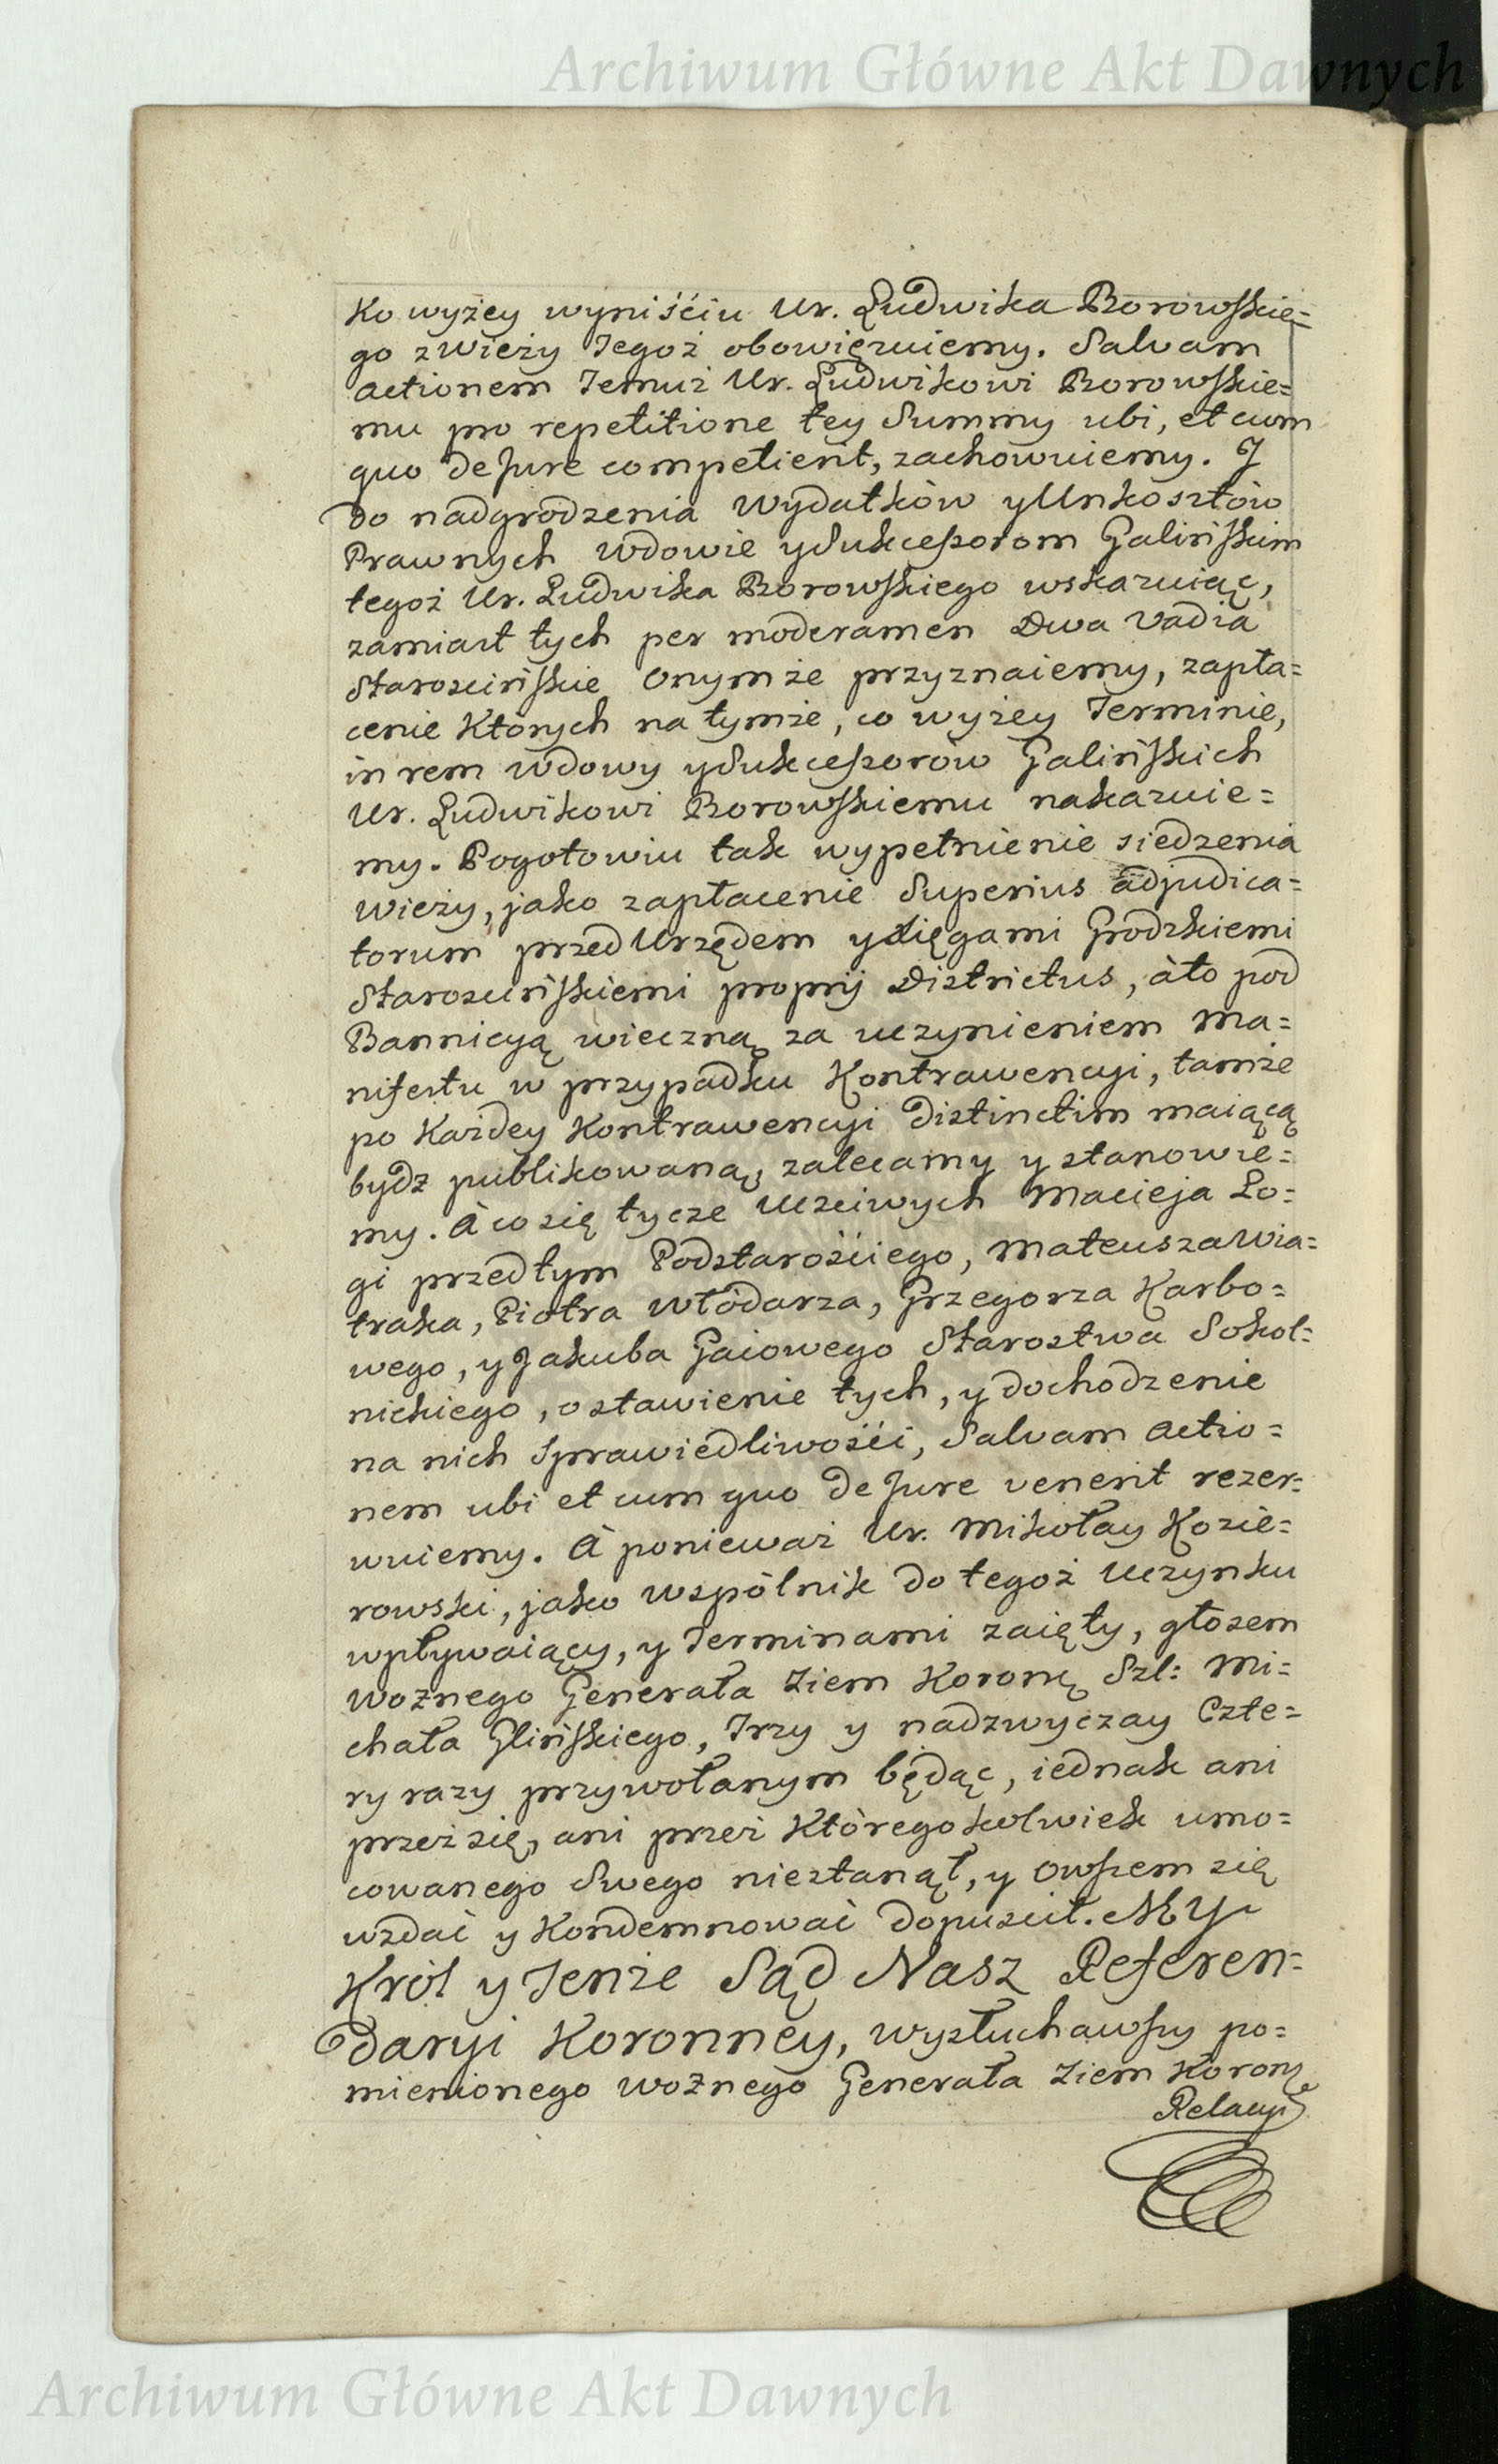 Archiwum Główne Akt Dawnych
Ko wyżey wyniściu Ur. Ludwika Borowskie=
go z Wieży Tegoż obowięzuiemy. Salvam
actionem Temuż Ur. Ludwikowi Borowskie=
mu pro repetitione tey Summy ubi, et cum
quo de Jure competierit, zachowuiemy. I
do nadgrodzenia Wydatków y Unkosztów
Prawnych Wdowie y Sukceszorom Galińskim
tegoż Ur. Ludwika Borowskiego wskazuiąc,
zamiast tych per moderamen Dwa Vadia
Starościńskie Onymże przyznaiemy, zapła=
cenie Których na tymże, co wyżey Terminie,
in rem Wdowy y Sukceszorów Galińskich
Ur. Ludwikowi Borowskiemu nakazuie=
my. Pogotowiu tak wypełnienie siedzenia
Wieży, jako zapłacenie Superius adjudica=
torum przed Urzędem y Xięgami Grodzkiemi
Starościńskiemi proprij Districtus, à to pod
Bannicyą wieczną za uczynieniem Ma=
nifestu w przypadku Kontrawencyi, tamże
po Każdey Kontrawencyi distinctim maiącą
bydz publikowaną, zalecamy y stanowie=
my. À co się tycze Uczciwych Macieja Ło=
gi przedtym Podstarościego, Mateusza Wia=
traka, Piotra Włodarza, Grzegorza Karbo=
wego, y Jakuba Gaiowego Starostwa Sokol=
nickiego, o stawienie tych, y dochodzenie
na nich Sprawiedliwości, Salvam actio=
nem ubi et cum quo de Jure venerit rezer=
wuiemy. À ponieważ Ur. Mikołay Kozie=
rowski, jako wspólnik do tegoż Uczynku
wpływaiący, y Terminami zaięty, głosem
Woźnego Generała Ziem Koronę Szl: Mi=
chała Glińskiego, Trzy y nadzwyczay Czte=
ry razy przywołanym będąc, iednak ani
przez się, ani przez Któregokolwiek umo=
cowanego Swego niestanął, y owszem się
wzdać y Kondemnować dopuścił. MY
Król y Tenże Sąd Nasz Referen=
daryi Koronney, wysłuchawszy po=
mienionego Woźnego Generała Ziem Koronę
Relacyi
Archiwum Główne Akt Dawnych